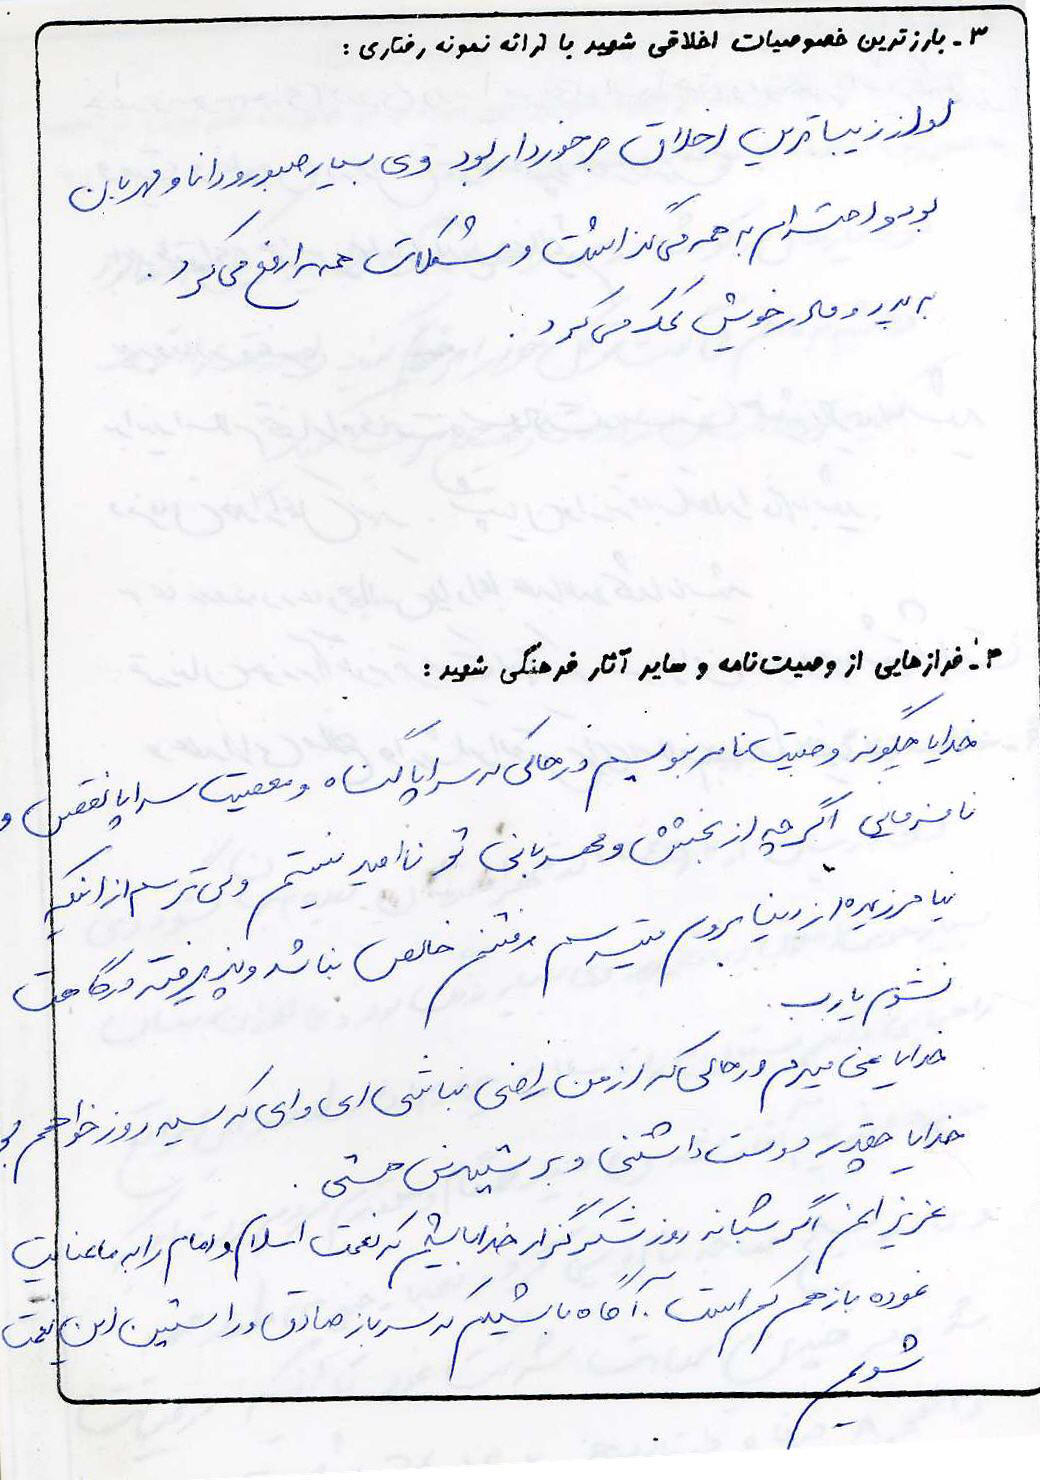 ۳ـ بارزترین خصوصیات اخلاقی شهید با ارائه نمونه رفتاری :
او از زیباترین اخلاق برخوردار بود وی بسیار صبور و دانا و مهربان
بود و احترام به همه می گذاشت و مشکلات همه را رفع می کرد .
به پدر و مادر خویش کمک می کرد .
۴ـ فرازهایی از وصیت‌نامه و سایر آثار فرهنگی شهید :
خدایا چگونه وصیت نامه بنویسم در حالی که سراپا گناه و معصیت سراپا نقص و
نافرمانی اگرچه از بخشش و مهربانی تو ناامید نیستم ولی ترسم از اینکه
نیامرزیده از دنیا بروم میترسم رفتنم خالص نباشد و پذیرفته درگاهت
نشوم یارب .
خدایا نمی میرم در حالی که از من راضی نباشی ای وای که سیه روز خواهم
خدایا چقدر دوست داشتنی و پرستیدنی هستی .
عزیزانم اگر شبانه روز شکرگزار خدا باشیم که نعمت اسلام و امام را به ما عنایت
نموده باز هم کم است . آگاه باشیم که سرباز صادق و راستین این نعمت
شویم